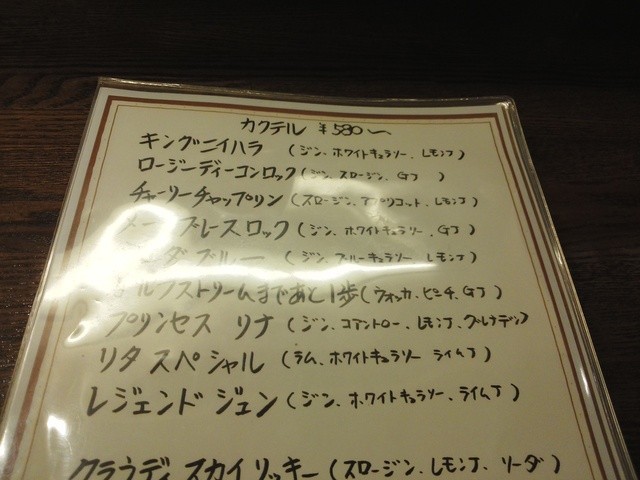 カクテル ¥580〜
キングニイハラ (ジン、ホワイトキュラソー、レモンJ)
ロージーディーコンロック(ジン、スロージン、GJ )
チャーリーチャップリン (スロージン、アプリコット、レモンJ)
ブレースロック (ジン、ホワイトキュラソー、GJ)
ブルー (ジン、ブルーキュラソー レモンJ)
ルフストリームまであと1歩 (ウォッカ、ピーチ、GJ)
プリンセス リナ (ジン、コアントロー、レモンJ、グレナデン)
リタ スペシャル (ラム、ホワイトキュラソー ライムJ)
レジェンド ジュン (ジン、ホワイトキュラソー、ライムJ)
クラウディ スカイ リッキー (スロージン、レモンJ、ソーダ)